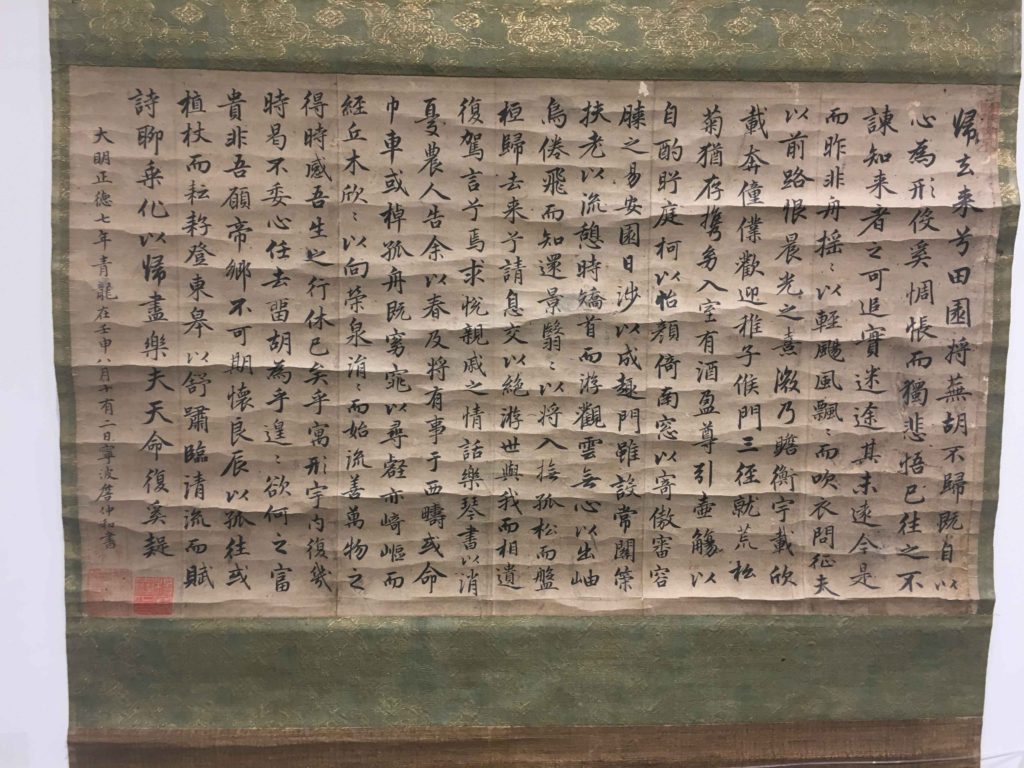 歸去来兮田園将蕪胡不歸既自以
心為形役奚惆悵而獨悲悟已往之不
諫知来者之可追實迷途其未遠今是
而昨非舟揺〻以輕颺風飄〻而吹衣問征夫
以前路恨晨光之熹微乃瞻衡宇載欣
載奔僮僕歡迎稚子候門三徑就荒松
菊猶存携幼入室有酒盈尊引壺觴以
自酌眄庭柯以怡顔倚南窓以寄傲審容
膝之易安園日涉以成趣門雖設常關策
扶老以流憩時矯首而游觀雲無心以出岫
鳥倦飛而知還景翳〻以将入撫孤松而盤
桓歸去来兮請息交以絶游世與我而相遺
復駕言兮焉求悅親戚之情話樂琴書以消
憂農人告余以春及将有事于西疇或命
巾車或棹孤舟既窈窕以尋壑亦崎嶇而
經丘木欣〻以向榮泉涓〻而始流善萬物之
得時感吾生之行休已矣乎寓形宇内復幾
時曷不委心任去留胡為乎遑〻欲何之富
貴非吾願帝鄉不可期懷良辰以孤往或
植杖而耘耔登東皋以舒嘯臨清流而賦
詩聊乘化以歸盡樂夫天命復奚疑
大明正德七年青龍在壬申八月十有二日寧波詹仲和書